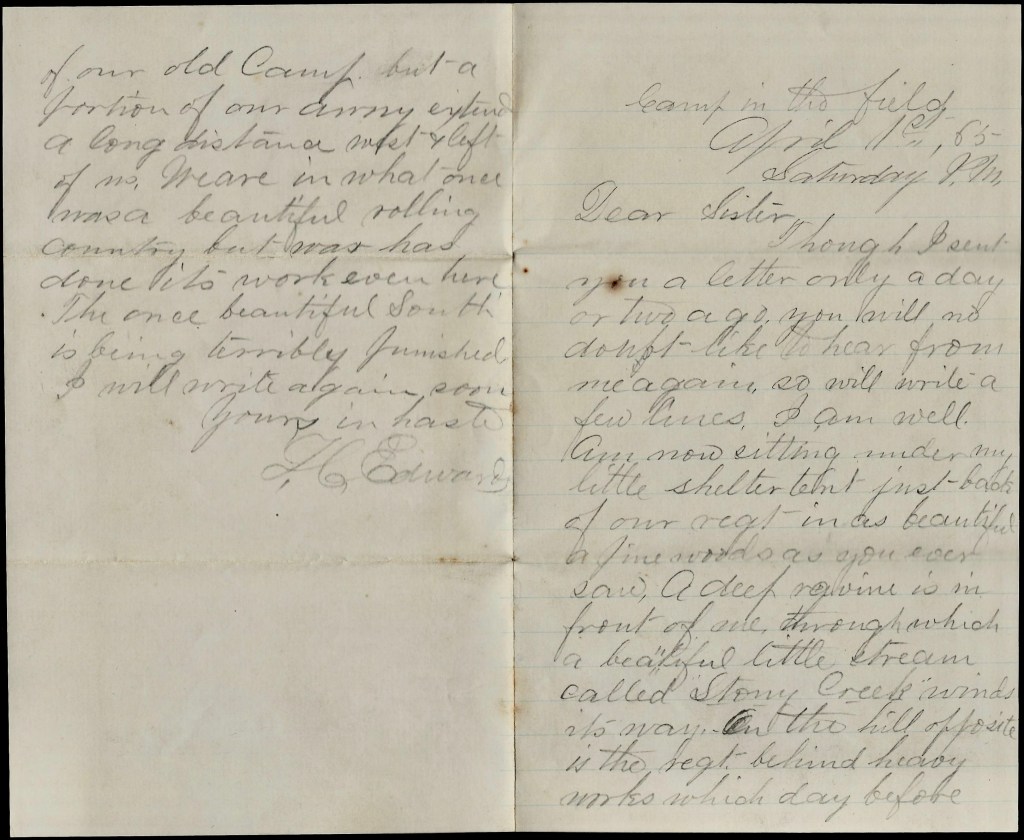 Camp in the field
April 1st, 65
Saturday P.M.
Dear Sister,
Though I sent
you a letter only a day
or two ago, you will no
doubt like to hear from
me again, so will write a
few lines. I am well.
Am now sitting under my
little shelter tent just back
of our regt in as beautiful
a pine woods as you ever
saw, A deep ravine is in
front of me, through which
a beautiful little stream
called "Stony Creek" winds
its way. On the hill opposite
is the regt. behind heavy
works which day before
of our old Camp. but a
portion of our army extend
a long distance west & left
of us. We are in what once
was a beautiful rolling
country but war has
done its work even here
The once beautiful South
is being terribly punished
I will write again soon
Yours in haste
H Edwards